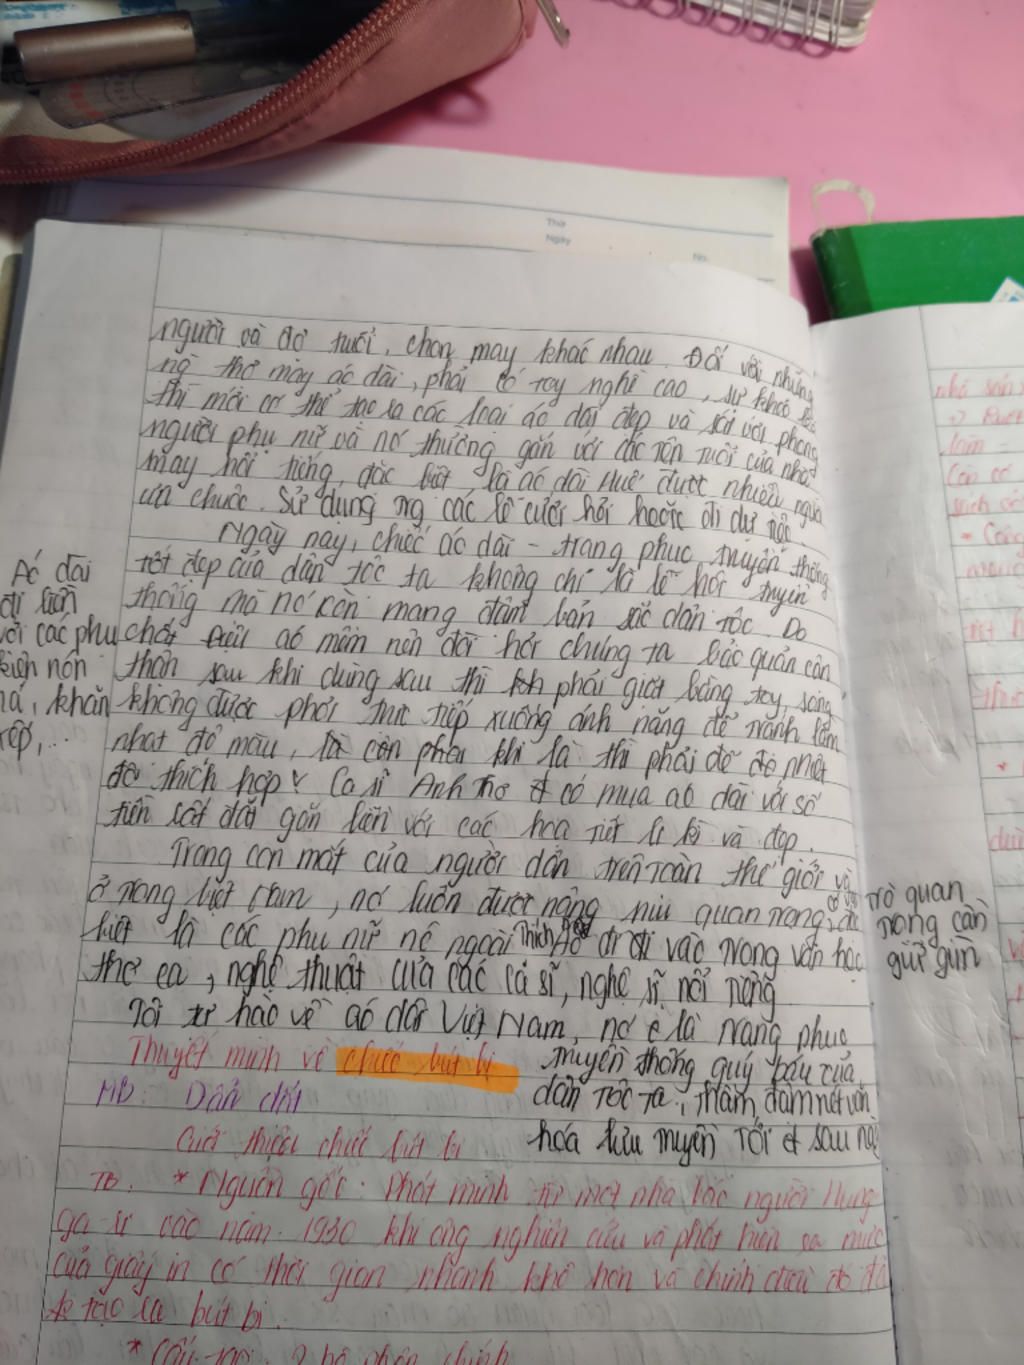 Thứ
Ngày
No.
người và độ tuổi, chọn may khác nhau. Đối với những
ng thợ may áo dài, phải có tay nghề cao, sự khéo
thì mới có thể tạo ra các loại áo dài đẹp và với phong
người phụ nữ và nó thường gắn với các tên tuổi của nhà
may nổi tiếng, đặc biệt, là áo dài Huế được nhiều người
ưa chuộc. Sử dụng trg các lễ cưới hỏi hoặc đi dự tiệc.
Ngày nay, chiếc áo dài - trang phục truyền thống
tốt đẹp của dân tộc ta không chỉ là lễ hội truyền
thống mà nó còn mang đậm bản sắc dân tộc. Do
chất áo mềm nên đòi hỏi chúng ta bảo quản cẩn
thận sau khi dùng sau thì phải giặt bằng tay, song
không được phơi trực tiếp xuống ánh nắng để tránh làm
nhạt đồ màu, còn phải khi là thì phải để độ nhiệt
độ thích hợp. Ca sĩ Anh Thơ có mua áo dài với số
tiền rất đắt gắn liền với các hoạ tiết li kì và đẹp.
Áo dài
đi liền
với các phụ
kiện nón
lá, khăn
xếp,...
Trong con mắt của người dân trên toàn thế giới và
ở trong Việt Nam, nó luôn được nâng niu quan trọng,
biệt là các phụ nữ nc ngoài thích. Áo đi vào trong văn học
thơ ca, nghệ thuật của các ca sĩ, nghệ sĩ nổi tiếng
có vai trò quan
trọng cần
giữ gìn
Tôi tự hào về áo dài Việt Nam, nó là trang phục
truyền thống quý báu của
dân tộc ta, thấm đẫm nét văn
hóa lưu truyền tới sau này
Thuyết minh về chiếc bút bi
MB: Dẫn dắt
Giới thiệu chiếc bút bi
TB: * Nguồn gốc: Phát minh từ một nhà báo người Hung
ga-ri vào năm 1930 khi ông nghiên cứu và phát hiện ra mực
của giấy in có thời gian nhanh khô hơn và chính điều đó đã
tạo ra bút bi.
* Cấu tạo: 2 bộ phận chính